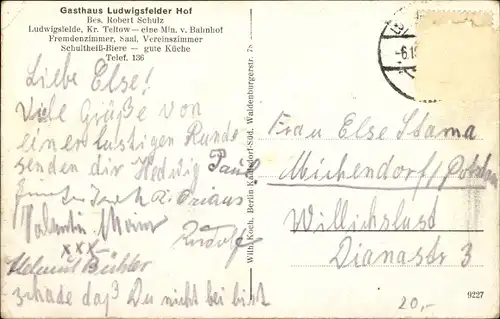 Gasthaus Ludwigsfelder Hof
Bes. Robert Schulz
Ludwigsfelde, Kr. Teltow — eine Min. v. Bahnhof
Fremdenzimmer, Saal, Vereinszimmer
Schultheiß-Biere — gute Küche
Telef. 136
Liebe Else!
Viele Grüße von
einer lustigen Runde
senden dir Hedwig Paul
Valentin
xxx
Helmut Bühler
schade daß Du nicht bei bist
Wilh. Koch, Berlin Karlshorst-Süd, Waldenburgerstr.
-6.10
Frau Else Stama
Michendorf/Potsdam
Willichslust
Dianastr 3
9227
20,-